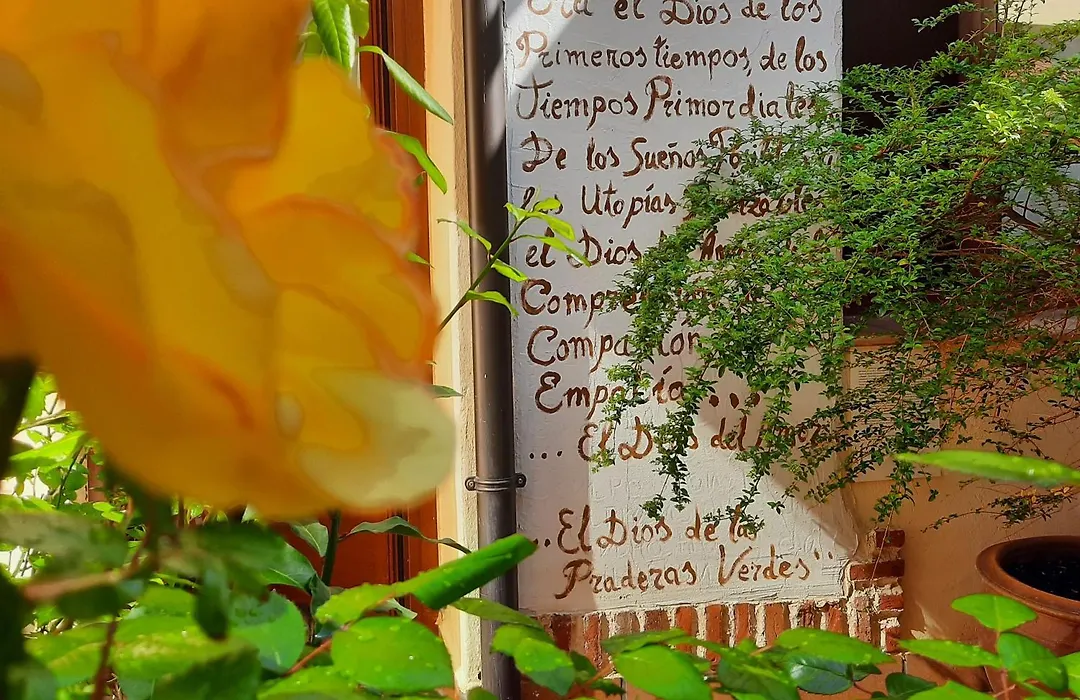 Era el Dios de los
Primeros tiempos, de los
Tiempos Primordiales
De los Sueños
las Utopías
el Dios
Comprensión
Compasión
Empatía...
... El Dios del Amor
..El Dios de las
Praderas Verdes..